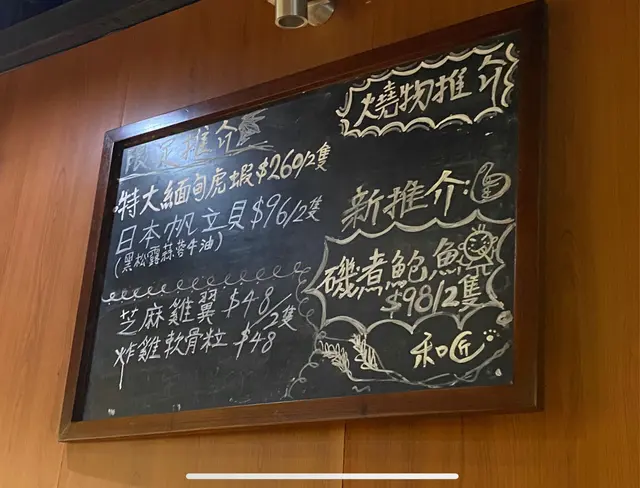 限定推介
特大緬甸虎蝦$260/2隻
日本帆立貝$96/2隻
(黑松露蒜蓉牛油)
芝麻雞翼 $48/2隻
炸雞軟骨粒 $48
燒物推介
新推介:
磯煮鮑魚
$98/2隻
和匠